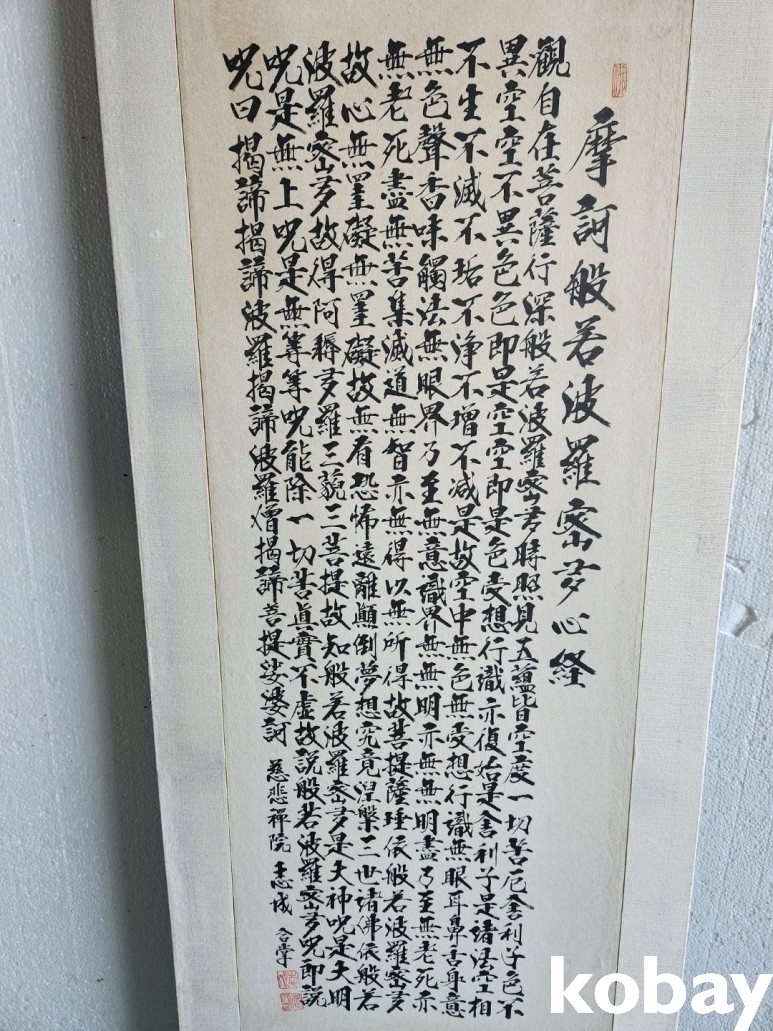 摩訶般若波羅密多心経
觀自在菩薩行深般若波羅密多時照見五蘊皆空度一切苦厄舍利子色不
異空空不異色色即是空空即是色受想行識亦復如是舍利子是諸法空相
不生不滅不垢不淨不增不减是故空中無色無受想行識無眼耳鼻舌身意
無色聲香味觸法無眼界乃至無意識界無無明亦無無明盡乃至無老死亦
無老死盡無苦集滅道無智亦無得以無所得故菩提薩埵依般若波羅密多
故心無罣礙無罣礙故無有恐怖遠離顛倒夢想究竟涅槃三世諸佛依般若
波羅密多故得阿耨多羅三藐三菩提故知般若波羅密多是大神呪是大明
呪是無上呪是無等等呪能除一切苦眞實不虛故説般若波羅密多呪即説
呪曰揭諦揭諦波羅揭諦波羅僧揭諦菩提娑婆訶 慈悲禪院 志成 合掌
kobay